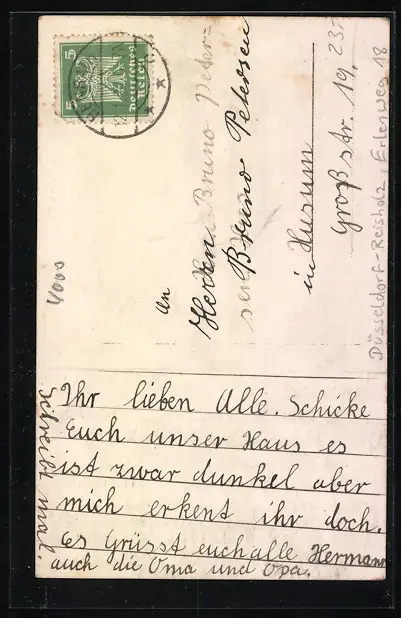 5 Deutsches Reich 5
4000
An
Herrn Bruno Peter-
sen
Bruno Petersen
in Husum
Großstr. 19, 23
Düsseldorf-Reisholz, Erlenweg 18
Ihr lieben Alle. Schicke
Euch unser Haus es
ist zwar dunkel aber
mich erkent ihr doch.
Es Grüsst euch alle Hermann
auch die Oma und Opa.
Schreibt mal.